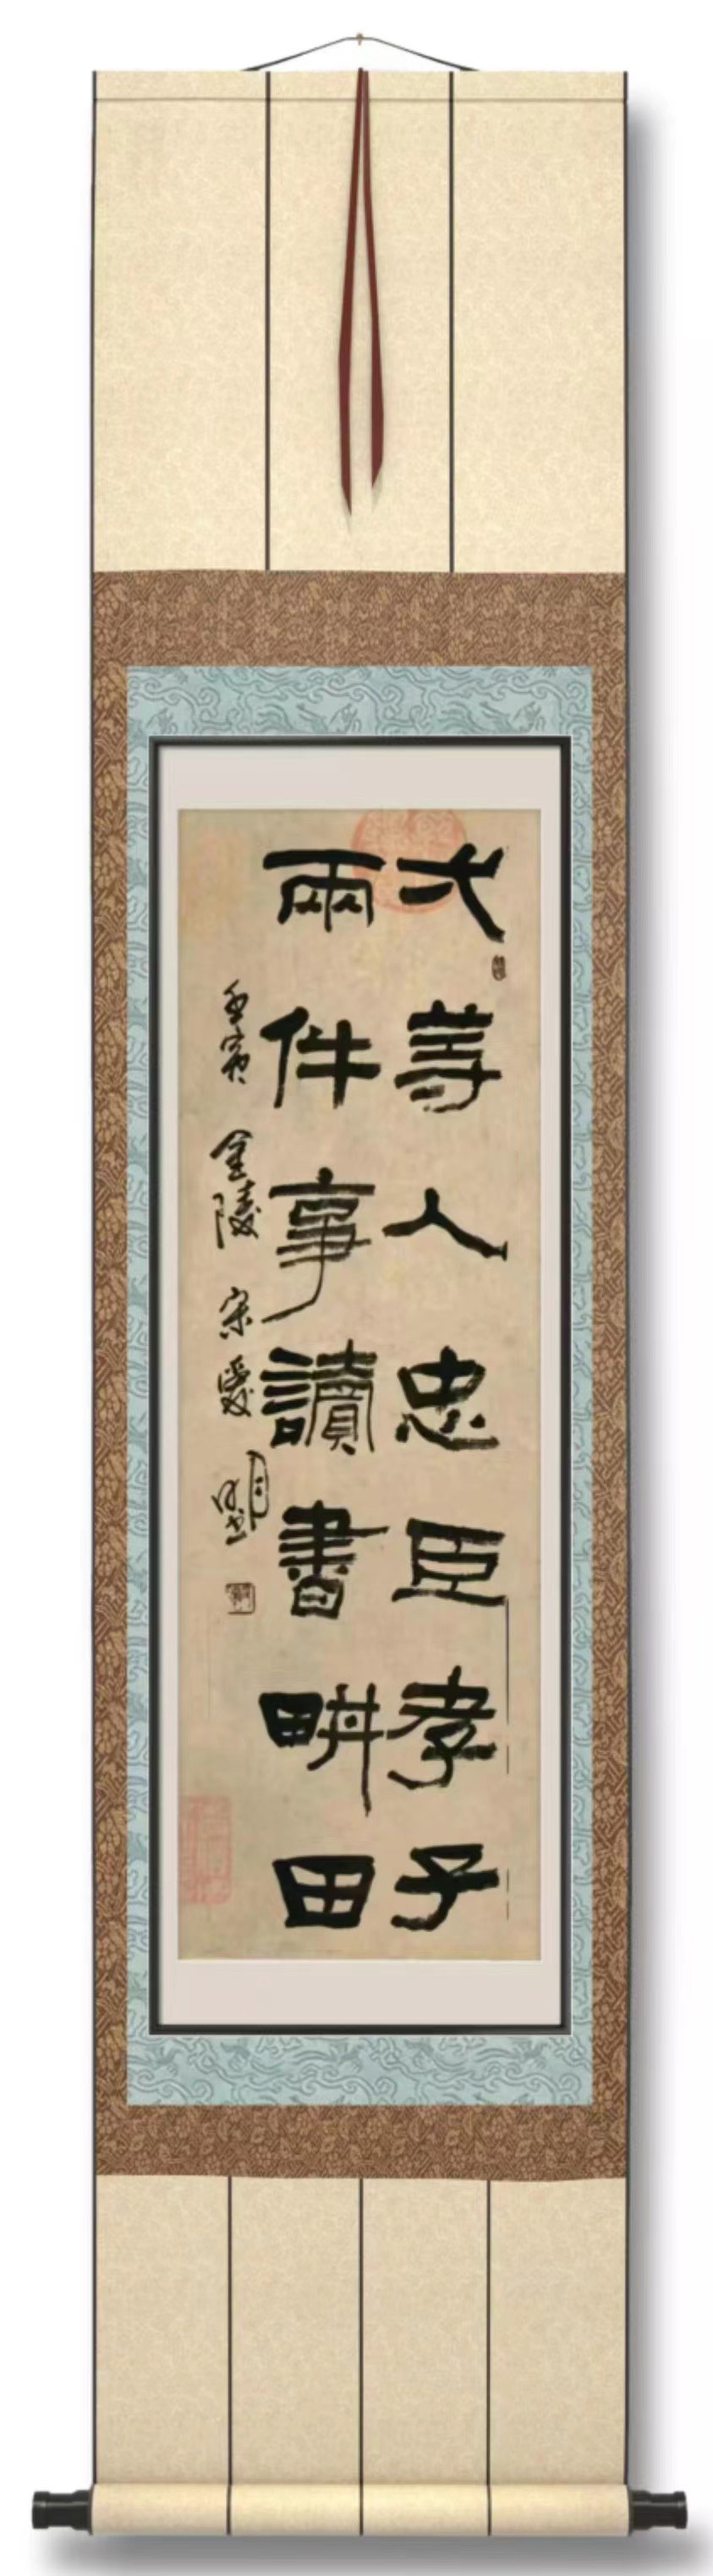 弌等人忠臣孝子
兩件事讀書畊田
壬寅 金陵 宋愛明書